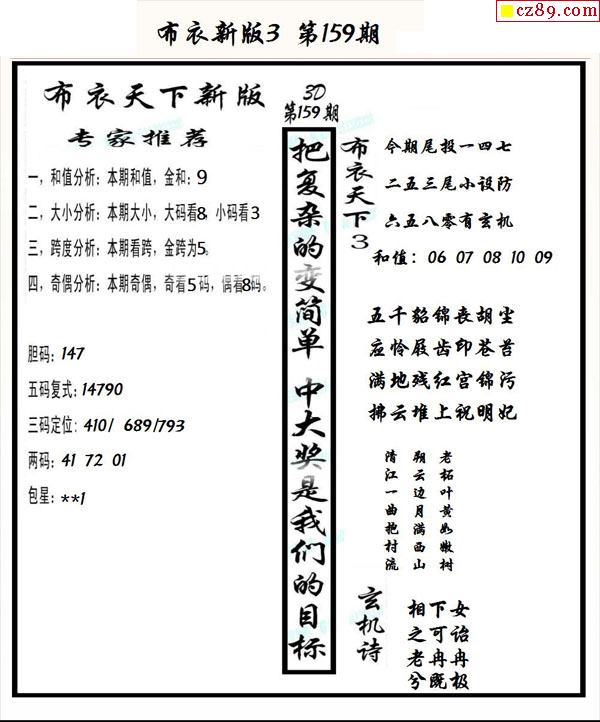 cz89.com
布衣新版3 第159期
布衣天下新版
专家推荐
一，和值分析：本期和值，金和：9
二，大小分析：本期大小，大码看8，小码看3
三，跨度分析：本期看跨，金跨为5。
四，奇偶分析：本期奇偶，奇看5码，偶看8码。
胆码：147
五码复式：14790
三码定位：410/ 689/793
两码：41 72 01
包星：**1
3D
第159期
把复杂的变简单 中大奖是我们的目标
布衣天下3
今期尾投一四七
二五三尾小设防
六五八零有玄机
和值：06 07 08 10 09
五千貂锦丧胡尘
应怜屐齿印苍苔
满地残红宫锦污
拂云堆上祝明妃
老柘叶黄如嫩树
朔云边月满西山
清江一曲抱村流
玄机诗
相下女
之可诒
老冉冉
兮既极